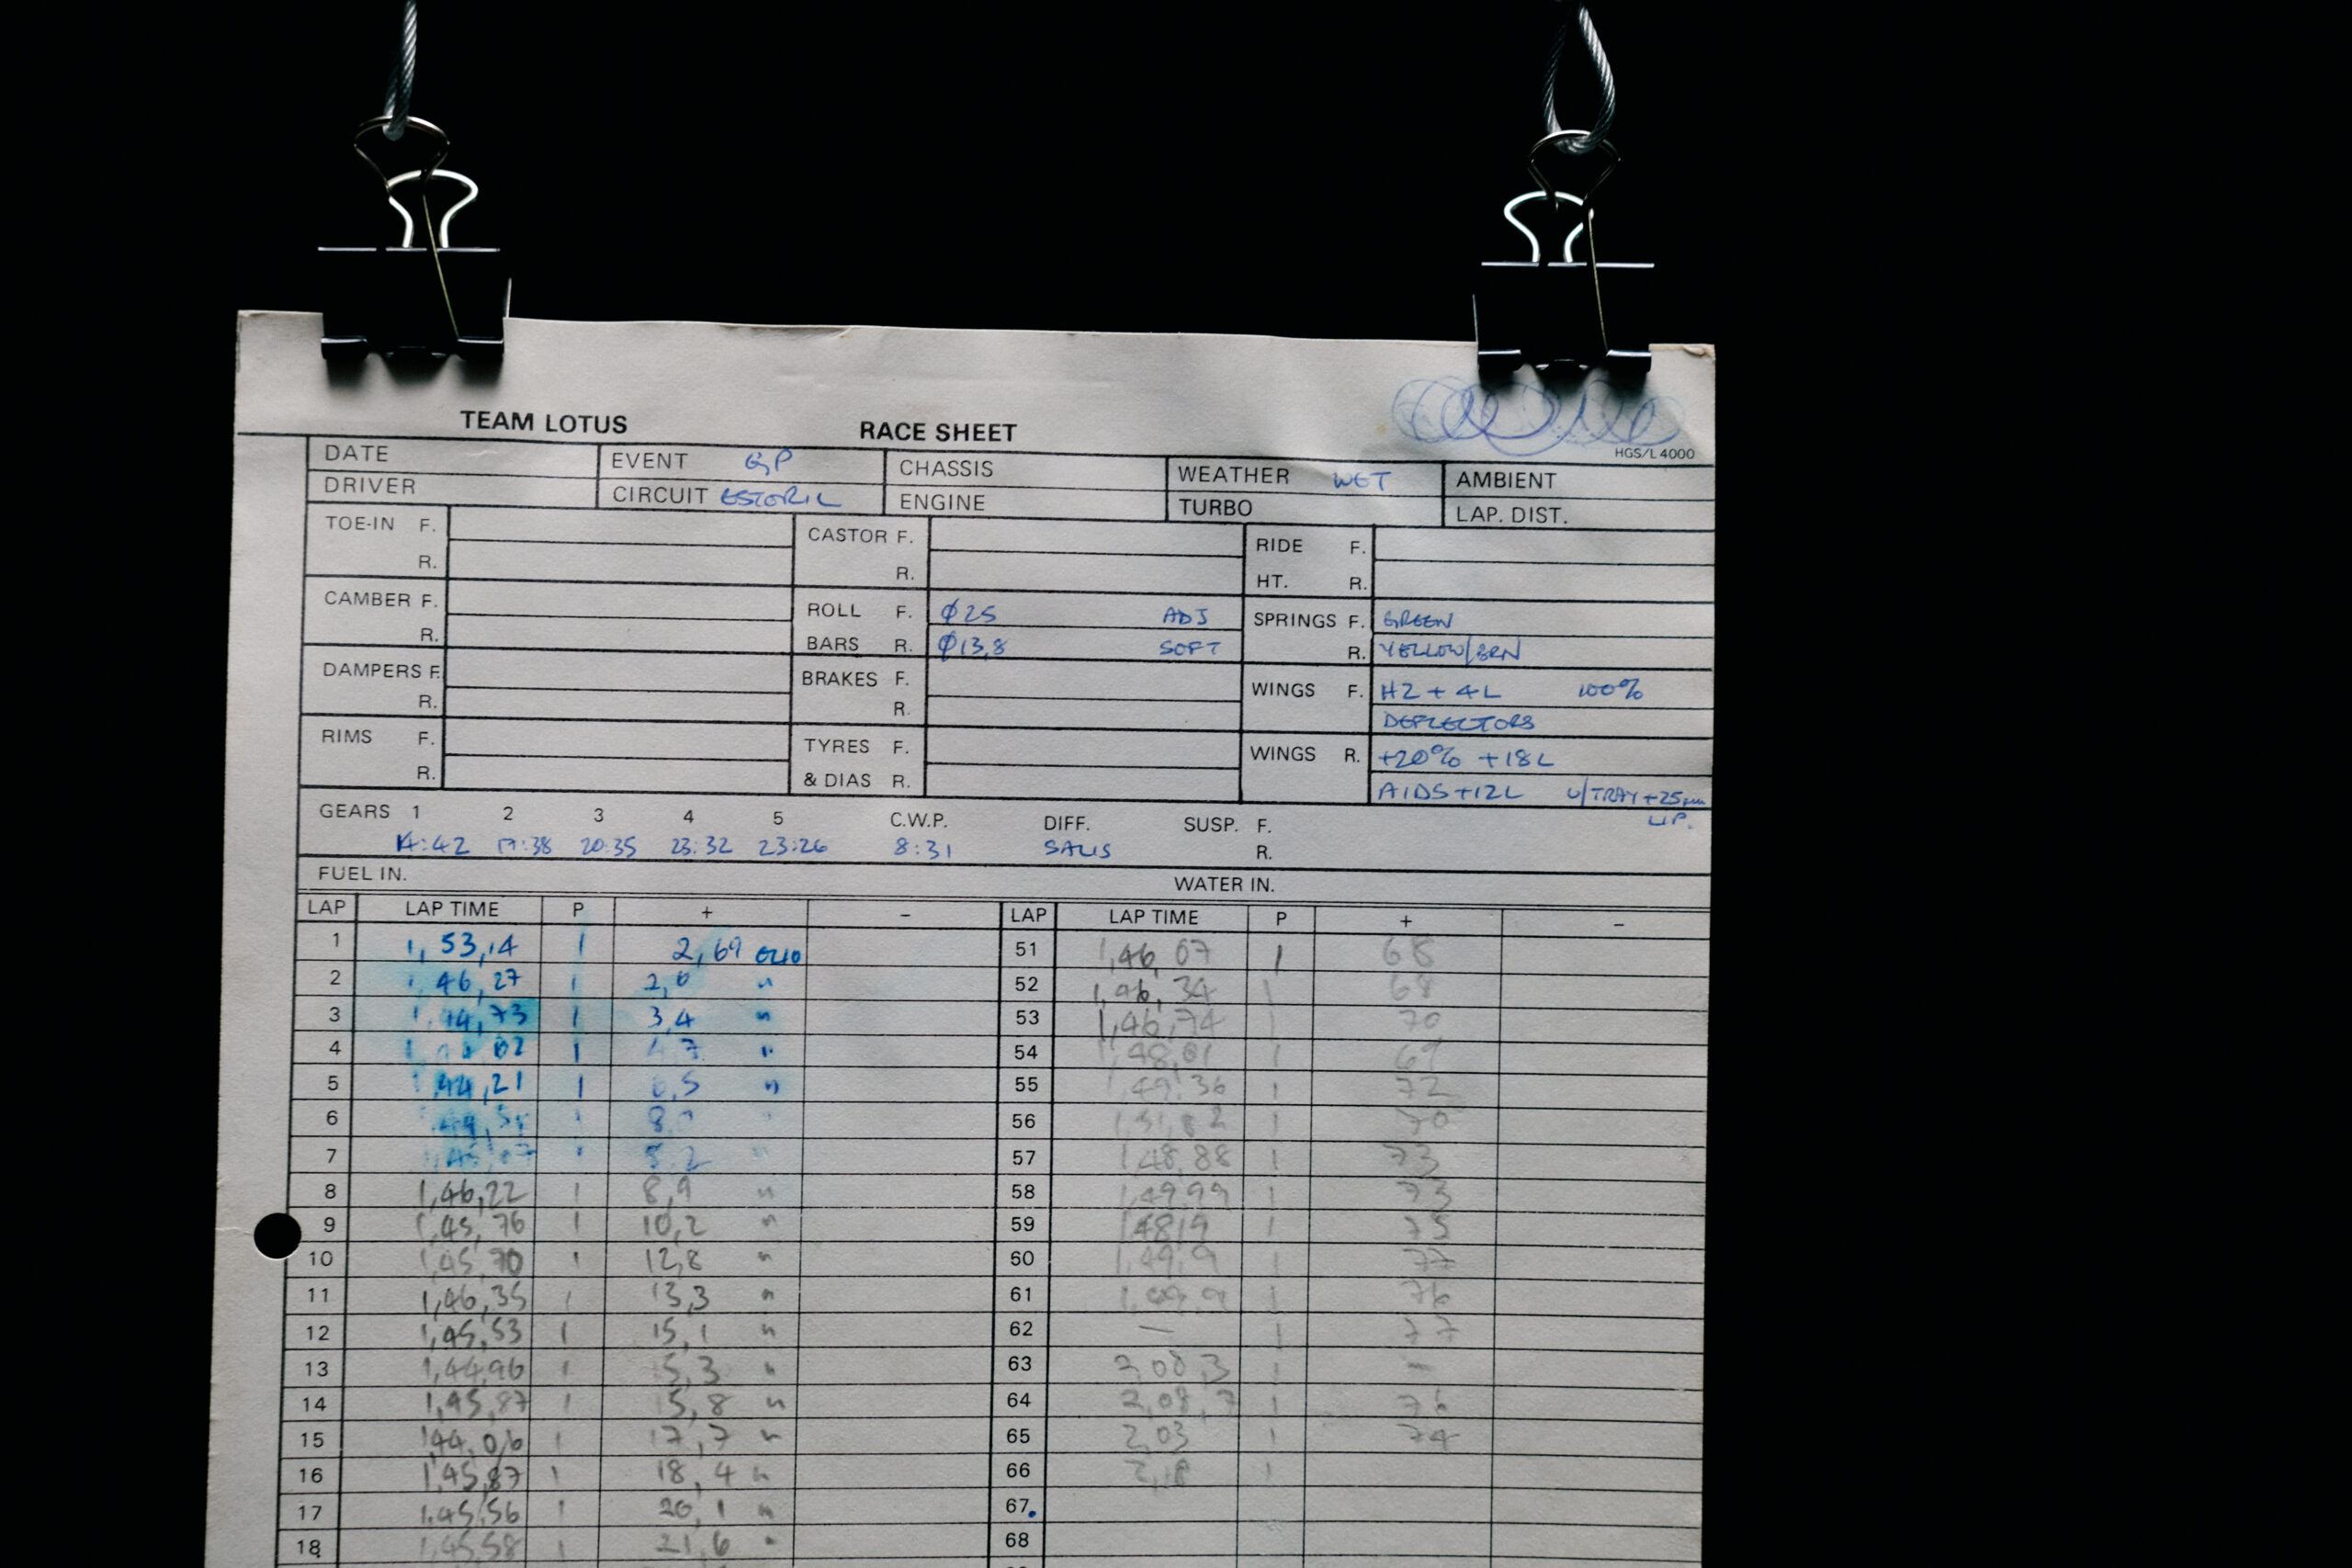 TEAM LOTUS RACE SHEET
HGS/L 4000
DATE EVENT GP CHASSIS WEATHER WET AMBIENT
DRIVER CIRCUIT ESTORIL ENGINE TURBO LAP. DIST.
TOE-IN F. CASTOR F. RIDE F.
R. R. HT. R.
CAMBER F. ROLL F. Ø25 ADJ SPRINGS F. GREEN
R. BARS R. Ø13,8 SOFT R. YELLOW/BRN
DAMPERS F. BRAKES F. WINGS F. H2 + 4L 100%
R. R. DEFLECTORS
RIMS F. TYRES F. WINGS R. +20% +18L
R. & DIAS R. AIDS+12L U/TRAY +25mm
LIP.
GEARS 1 2 3 4 5 C.W.P. DIFF. SUSP. F.
14:42 17:38 20:35 23:32 23:26 8:31 SALIS R.
FUEL IN. WATER IN.
LAP LAP TIME P + - LAP LAP TIME P + -
1 1,53,14 1 2,69 ELIO 51 1,46,07 1 68
2 1 46,27 1 2,0 " 52 1,46,34 1 68
3 1,44,73 1 3,4 " 53 1,46,74 1 70
4 02 1 4,7 " 54 1,48,01 1 69
5 1 44,21 1 6,5 " 55 1,49,36 1 72
6 1 8, " 56 1,51,82 1 70
7 1 " 57 1,48,88 1 73
8 1,46,22 1 8,9 " 58 1,49,99 1 73
9 1,45,76 1 10,2 " 59 1,48,9 1 75
10 1,45,70 1 12,8 " 60 1,49,9 1 77
11 1,46,35 1 13,3 " 61 1,49,9 1 76
12 1,45,53 1 15,1 " 62 — 1 77
13 1,44,96 1 15,3 " 63 2,08,3 1 —
14 1,45,87 1 15,8 " 64 2,08,7 1 76
15 1,44,06 1 17,7 " 65 2,03 1 74
16 1,45,87 1 18,4 " 66 2,18 1
17 1,45,56 1 20,1 " 67.
18 1,45,58 1 21,6 " 68